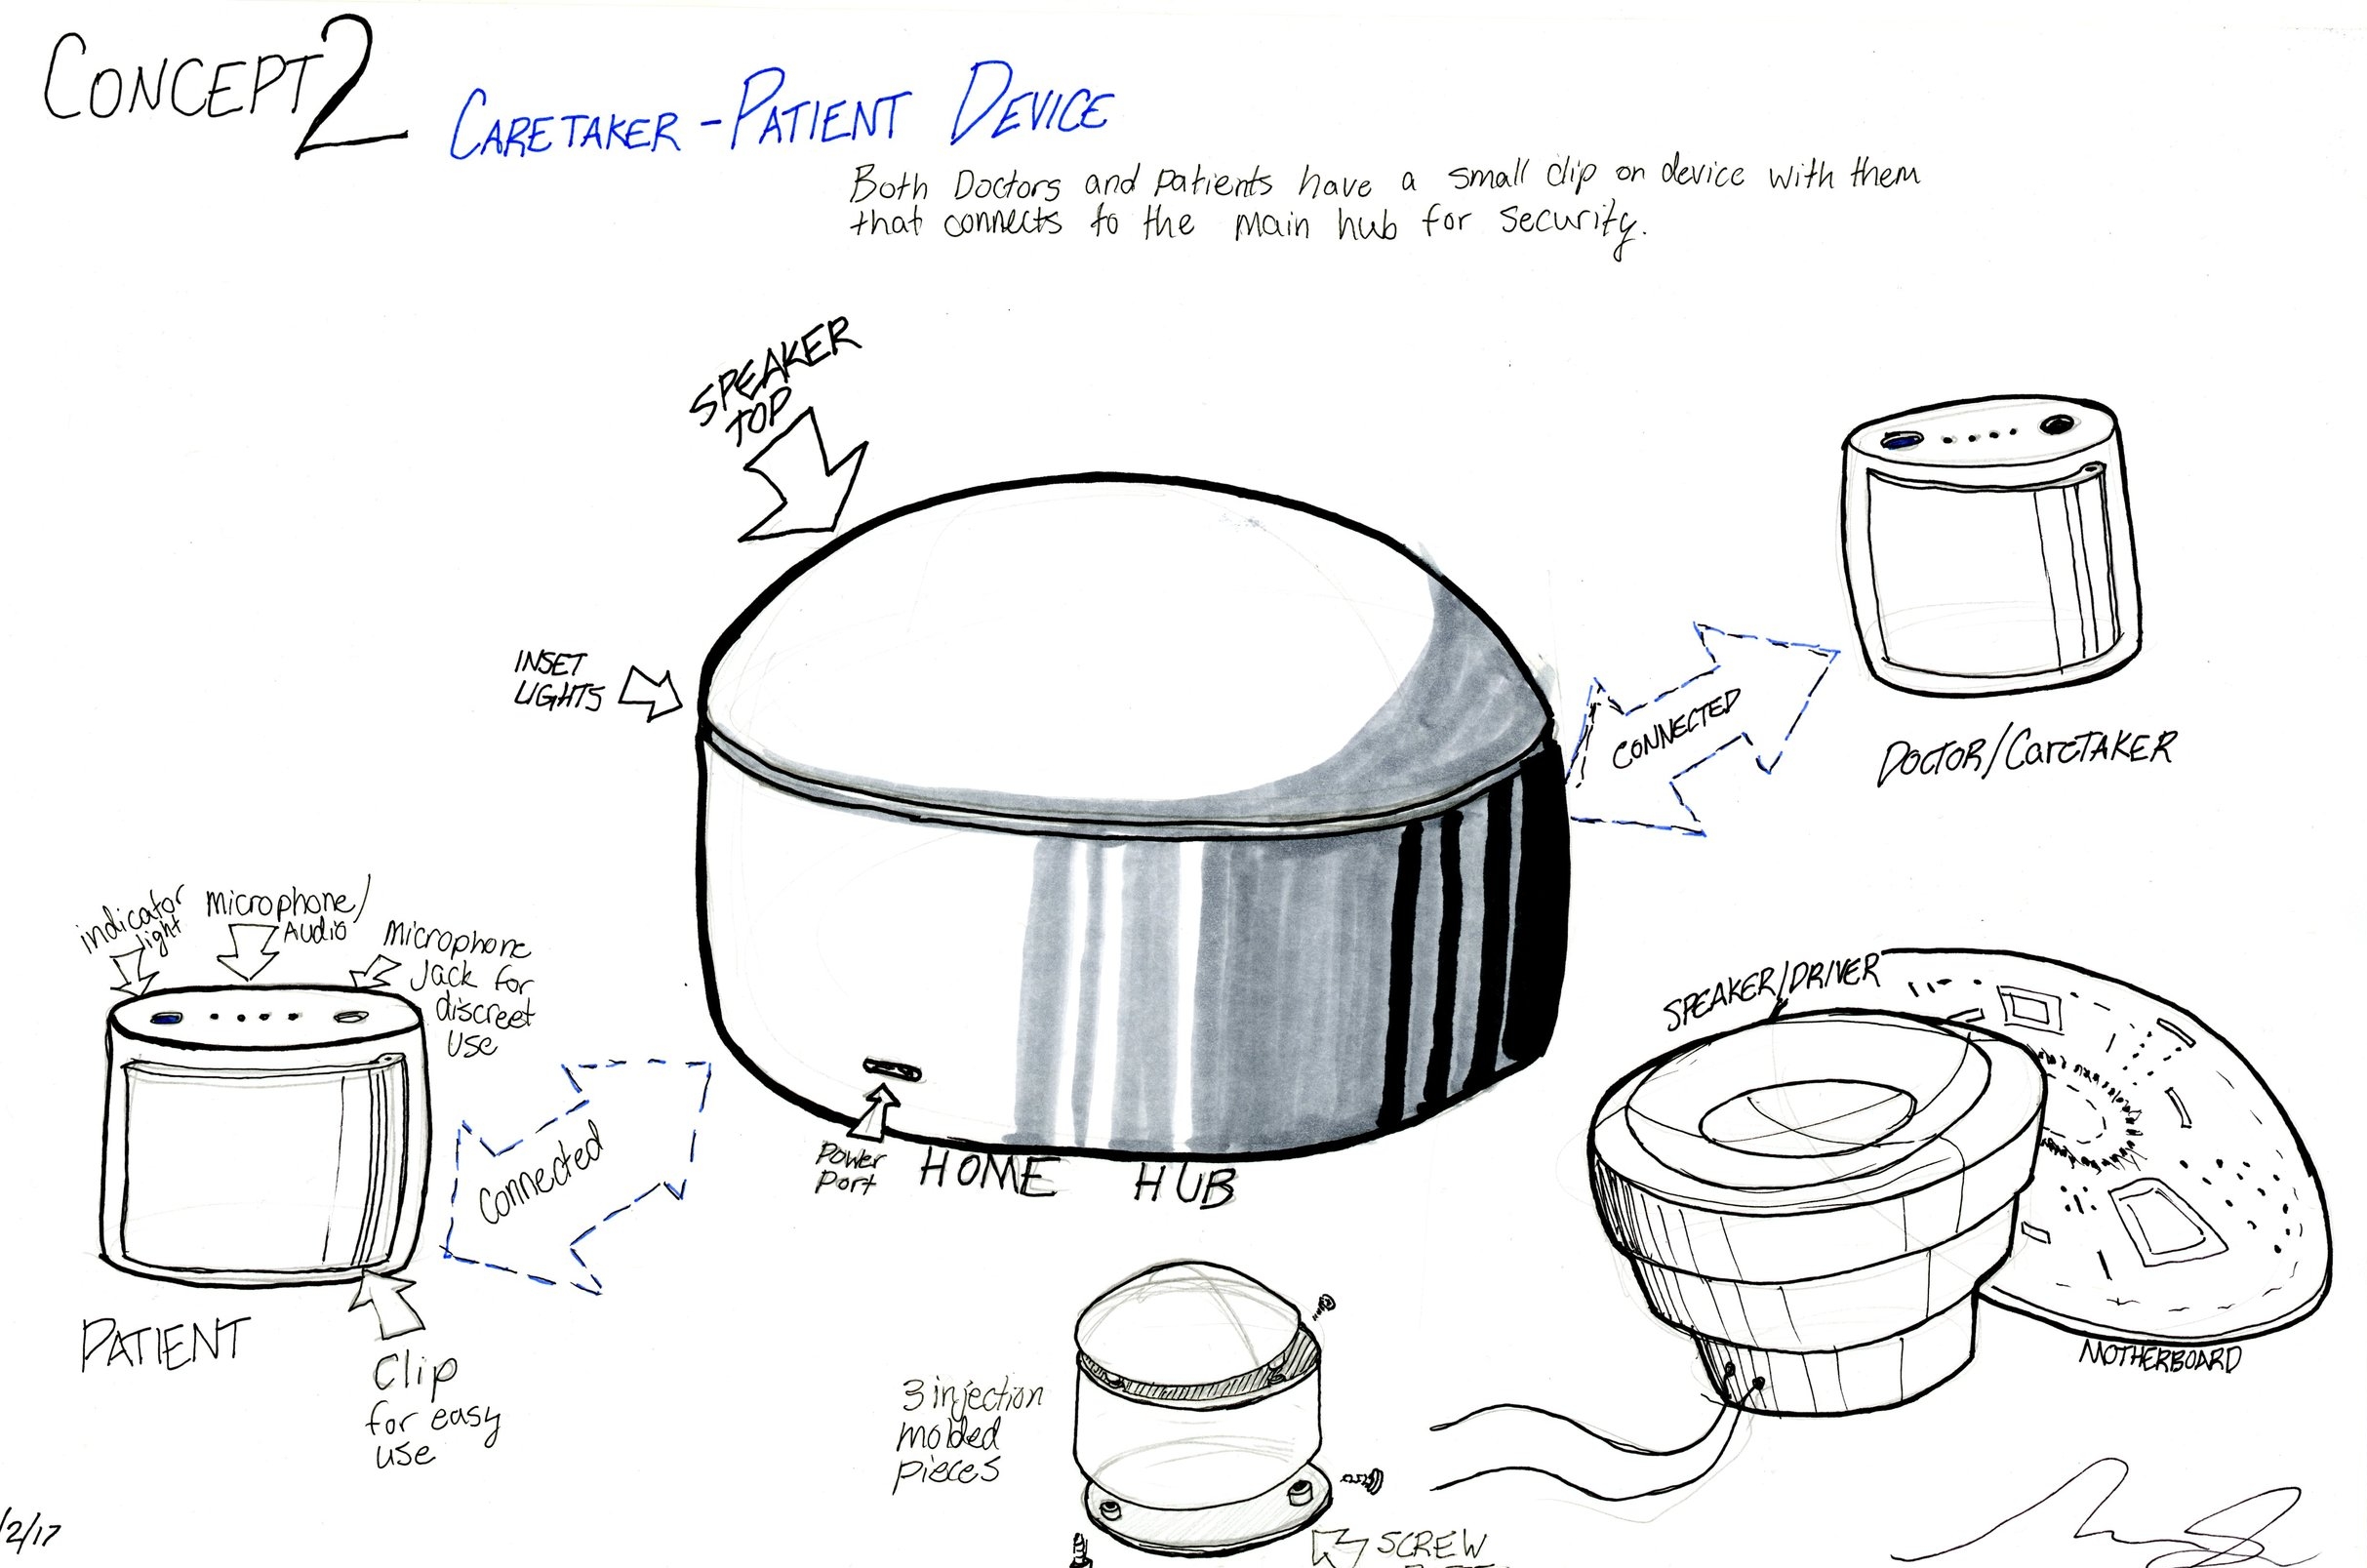 CONCEPT 2
CARETAKER-PATIENT DEVICE
Both Doctors and patients have a small clip on device with them
that connects to the main hub for security.
SPEAKER
TOP
INSET
LIGHTS
CONNECTED
DOCTOR/CareTAKER
indicator
light
Microphone/
Audio
Microphone
Jack for
discreet
use
Connected
PATIENT
Clip
for easy
use
Power
Port
HOME HUB
SPEAKER/DRIVER
MOTHERBOARD
3 injection
molded
pieces
SCREW
/2/17